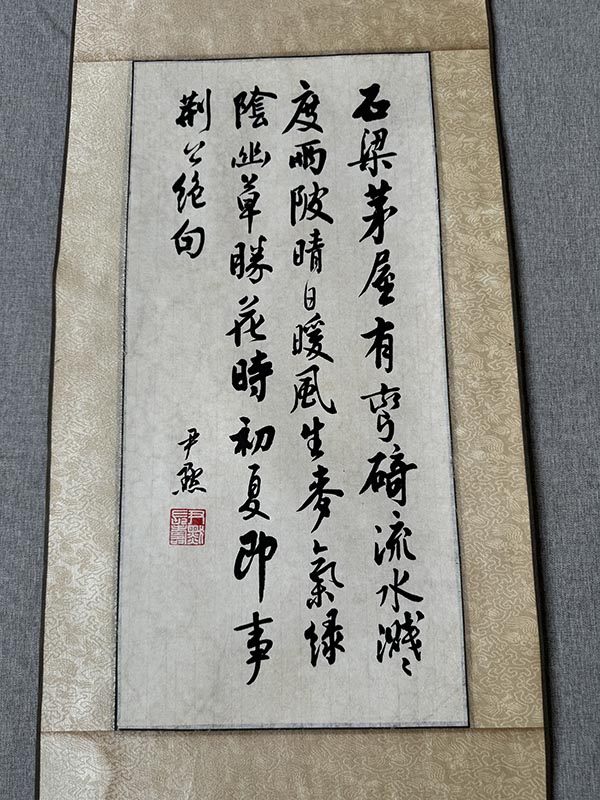 石梁茅屋有弯碕流水濺〻
度兩陂晴日暖風生麥氣綠
陰幽草勝花時初夏即事
荊公絕句
尹默